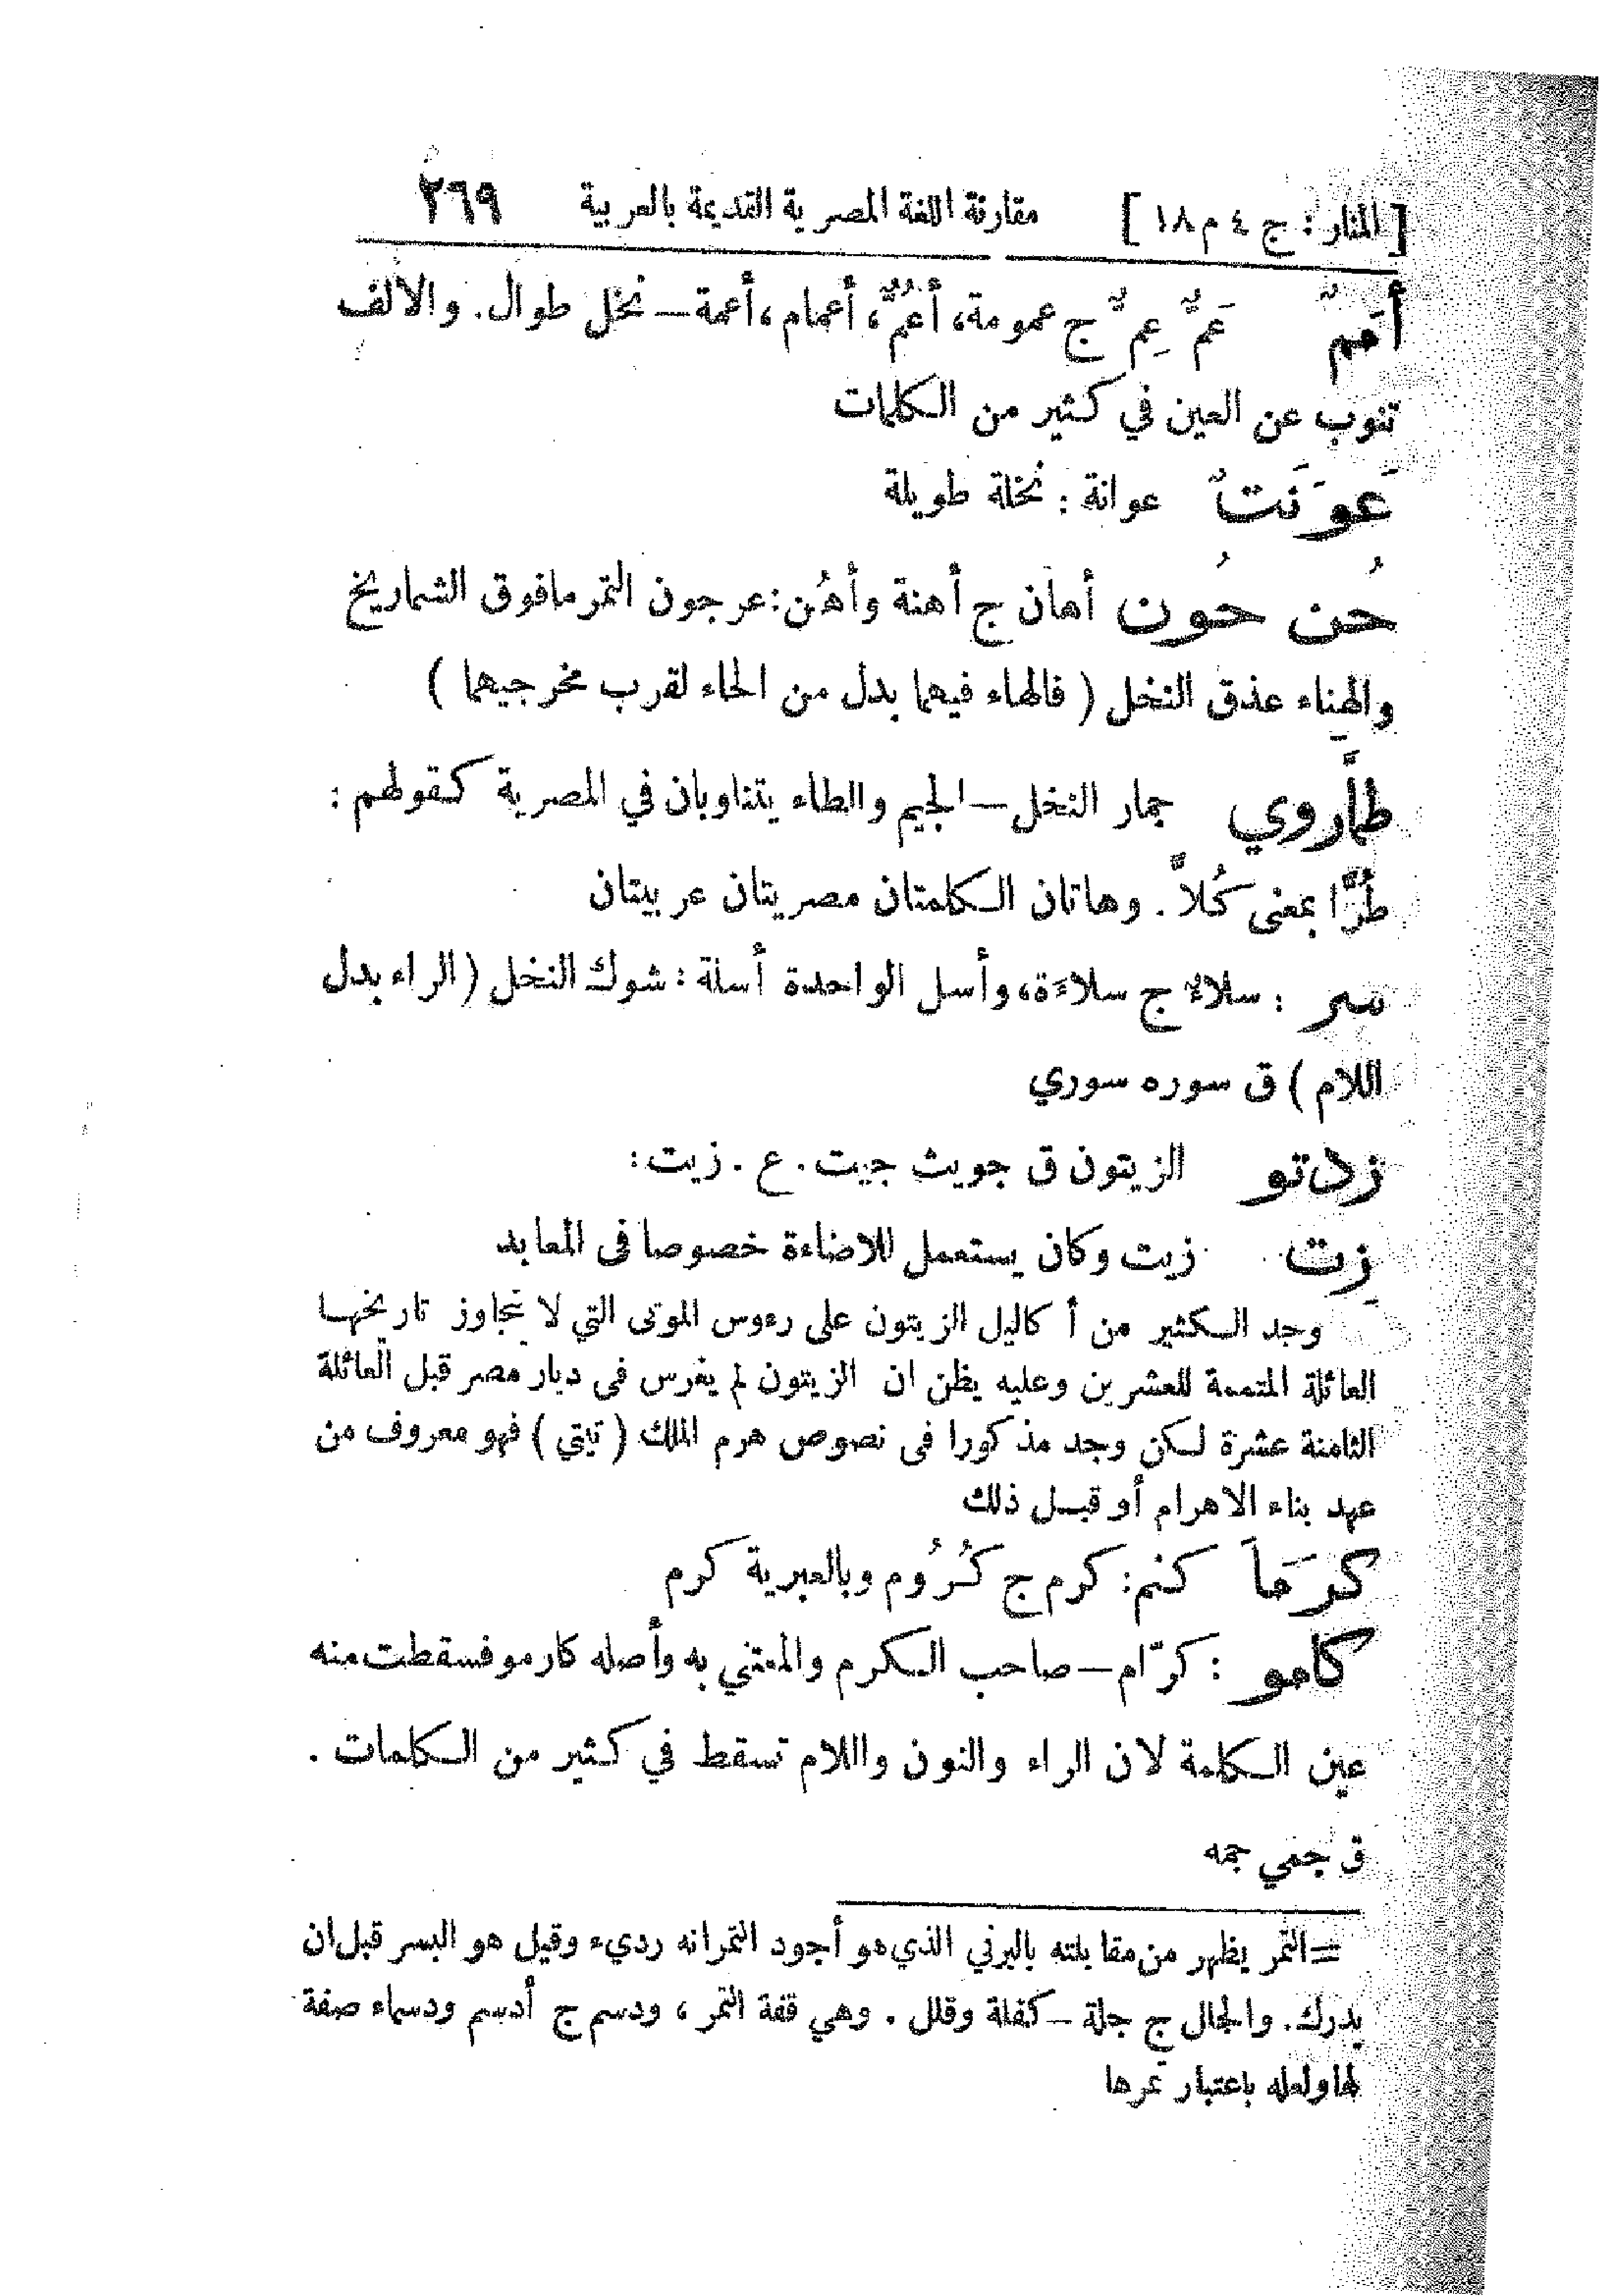 [ المنار : ج ٤ م ١٨ ] مقارنة اللغة المصرية القديمة بالعربية ٢٦٩
أَممٌ عَمٌّ عِمٌّ ج عمومة، أعُمٌّ، أعمام، أعمة – نخل طوال. والالف
تنوب عن العين في كثير من الكلمات
عَوَنَتٌ عوانة : نخلة طويلة
حُن حُون أهان ج أهنة وأهُن : عرجون التمر مافوق الشماريخ
والهناء عذق النخل ( فالهاء فيهما بدل من الحاء لقرب مخرجيهما )
طمَّاروي جمار النخل – الجيم والطاء يتناوبان في المصرية كقولهم :
طُرًّا بمعنى كُلاًّ . وهاتان الكلمتان مصريتان عربيتان
سر : سلاءٌ ج سلاءَة، وأسل الواحدة أسلة : شوك النخل ( الراء بدل
اللام ) ق سوره سوري
زدتو الزيتون ق جويث جيت . ع . زيت :
زت زيت وكان يستعمل للاضاءة خصوصا فى المعابد
وجد الكثير من أكاليل الزيتون على رءوس الموتى التي لا تجاوز تاريخها
العائلة المتممة للعشرين وعليه يظن ان الزيتون لم يغرس فى ديار مصر قبل العائلة
الثامنة عشرة لكن وجد مذكورا فى نصوص هرم الملك ( تيتي ) فهو معروف من
عهد بناء الاهرام أو قبل ذلك
كرَمَاَ كنم : كرم ج كُرُوم وبالعبرية كرم
كامو : كرّام – صاحب الكرم والمعتني به وأصله كارمو فسقطت منه
عين الكلمة لان الراء والنون واللام تسقط في كثير من الكلمات .
ق جمي جمه
= التمر يظهر من مقابلته بالبرني الذي هو أجود التمر انه رديء وقيل هو البسر قبل ان
يدرك. والجلال ج جلة – كقلة وقلل . وهي قفة التمر ، ودسم ج أدسم ودسماء صفة
لها ولعله باعتبار تمرها